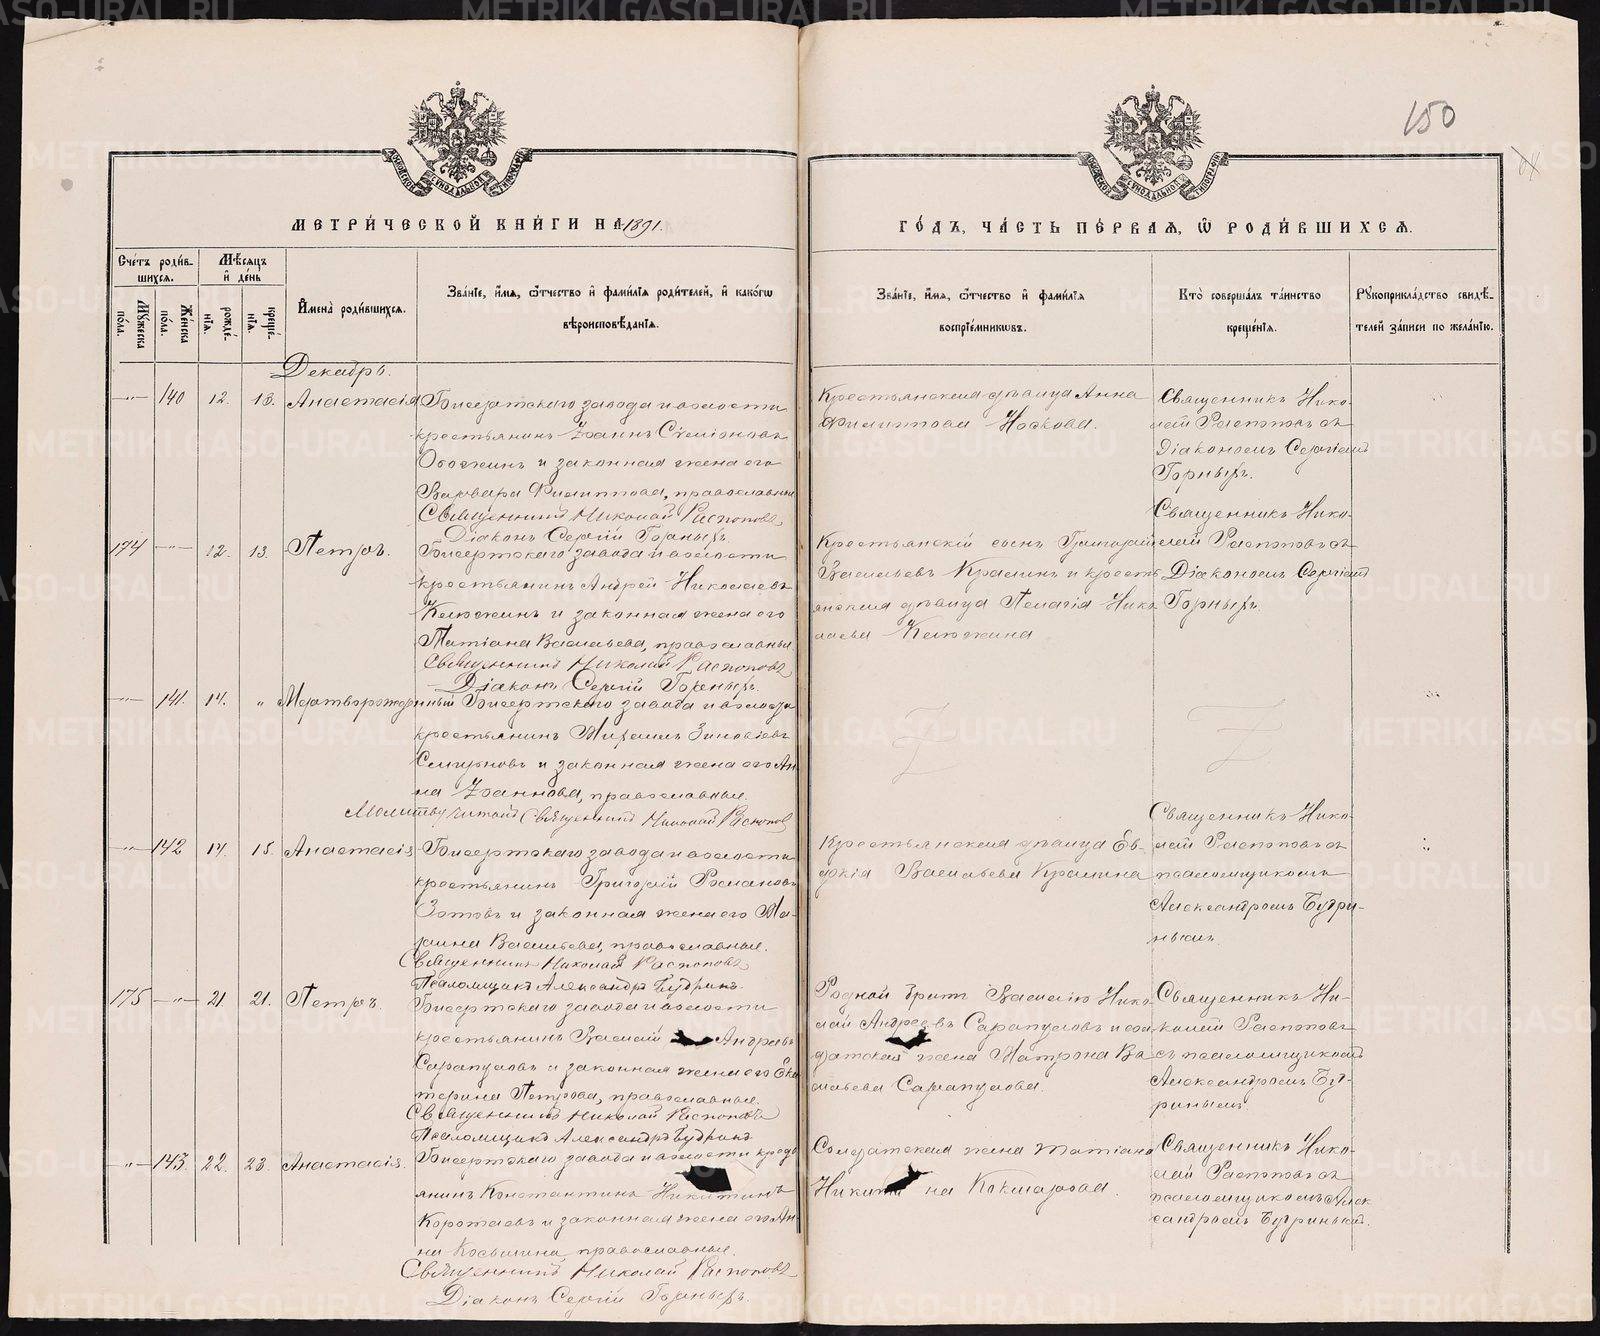 МЕТРИ́ЧЕСКОЙ КНИ́ГИ НА 1891.
ГО́ДЪ, ЧА́СТЬ ПЕ́РВАЯ, Ѽ РОДИ́ВШИХСЯ.
150
Сче́тъ роди́вшихся.
Мѣ́сяцъ и҆ де́нь
Му́жеска по́ла.
Же́нска по́ла.
рожде́нїя.
креще́нїя.
И҆мена̀ роди́вшихся.
Зва́нїе, и҆́мя, ѻ҆́тчество и҆ фами́лїя роди́телей, и҆ како́гѡ
вѣроисповѣ́данїя.
Зва́нїе, и҆́мя, ѻ҆́тчество и҆ фами́лїя
воспрїе́мникѡвъ.
Кто̀ соверша́лъ та́инство
креще́нїя.
Рꙋкоприкла́дство свидѣ́-
телей за́писи по жела́нїю.
Декабрь.
140 12. 13. Анастасія Бисертскаго завода и волости
крестьянинъ Іоаннъ Сѵмеоновъ
и законная жена его
Варвара Филиппова, православные
Священникъ Николай Распоповъ
Діаконъ Сергій Горныхъ.
Крестьянская дѣвица Анна
Филиппова Носкова.
Священникъ Нико-
лай Распоповъ съ
Діакономъ Сергіемъ
Горныхъ.
174 12. 13. Петръ. Бисертскаго завода и волости
крестьянинъ Андрей Николаевъ
и законная жена его
Татіана Васильева, православные
Священникъ Николай Распоповъ
Діаконъ Сергій Горныхъ.
Крестьянскій сынъ Григорій
Васильевъ и кресть-
янская дѣвица Пелагія Нико-
лаева
Священникъ Нико-
лай Распоповъ съ
Діакономъ Сергіемъ
Горныхъ.
141. 14. „ Мертворожденный Бисертскаго завода и волости
крестьянинъ Михаилъ Зиновіевъ
Смирновъ и законная жена его Ан-
на Іоаннова, православные.
Молитву читалъ Священникъ Николай Распоповъ
Z
Z
142 14. 15. Анастасія Бисертскаго завода и волости
крестьянинъ Григорій Романовъ
Зотовъ и законная жена его Ма-
рина Васильева, православные.
Священникъ Николай Распоповъ
Псаломщикъ Александръ Будринъ.
Крестьянская дѣвица Ев-
докія Васильева
Священникъ Нико-
лай Распоповъ съ
псаломщикомъ
Александромъ Будри-
нымъ.
175 21. 21. Петръ. Бисертскаго завода и волости
крестьянинъ Василій Андреевъ
Сарапуловъ и законная жена его Ека-
терина Петрова, православные.
Священникъ Николай Распоповъ
Псаломщикъ Александръ Будринъ
Родной братъ Василію Нико-
лай Андреевъ Сарапуловъ и сол-
датская жена Матрона Ва-
сильева Сарапулова.
Священникъ Ни-
колай Распоповъ
съ псаломщикомъ
Александромъ Буд-
ринымъ.
143. 22. 23. Анастасія. Бисертскаго завода и волости кресть-
янинъ Константинъ Никитинъ
Коротаевъ и законная жена его Ан-
на Косьмина, православные.
Священникъ Николай Распоповъ
Діаконъ Сергій Горныхъ.
Солдатская жена Татіана
Никитина Кокшарова.
Священникъ Нико-
лай Распоповъ съ
псаломщикомъ Алек-
сандромъ Будринымъ.
METRIKI.GASO-URAL.RU